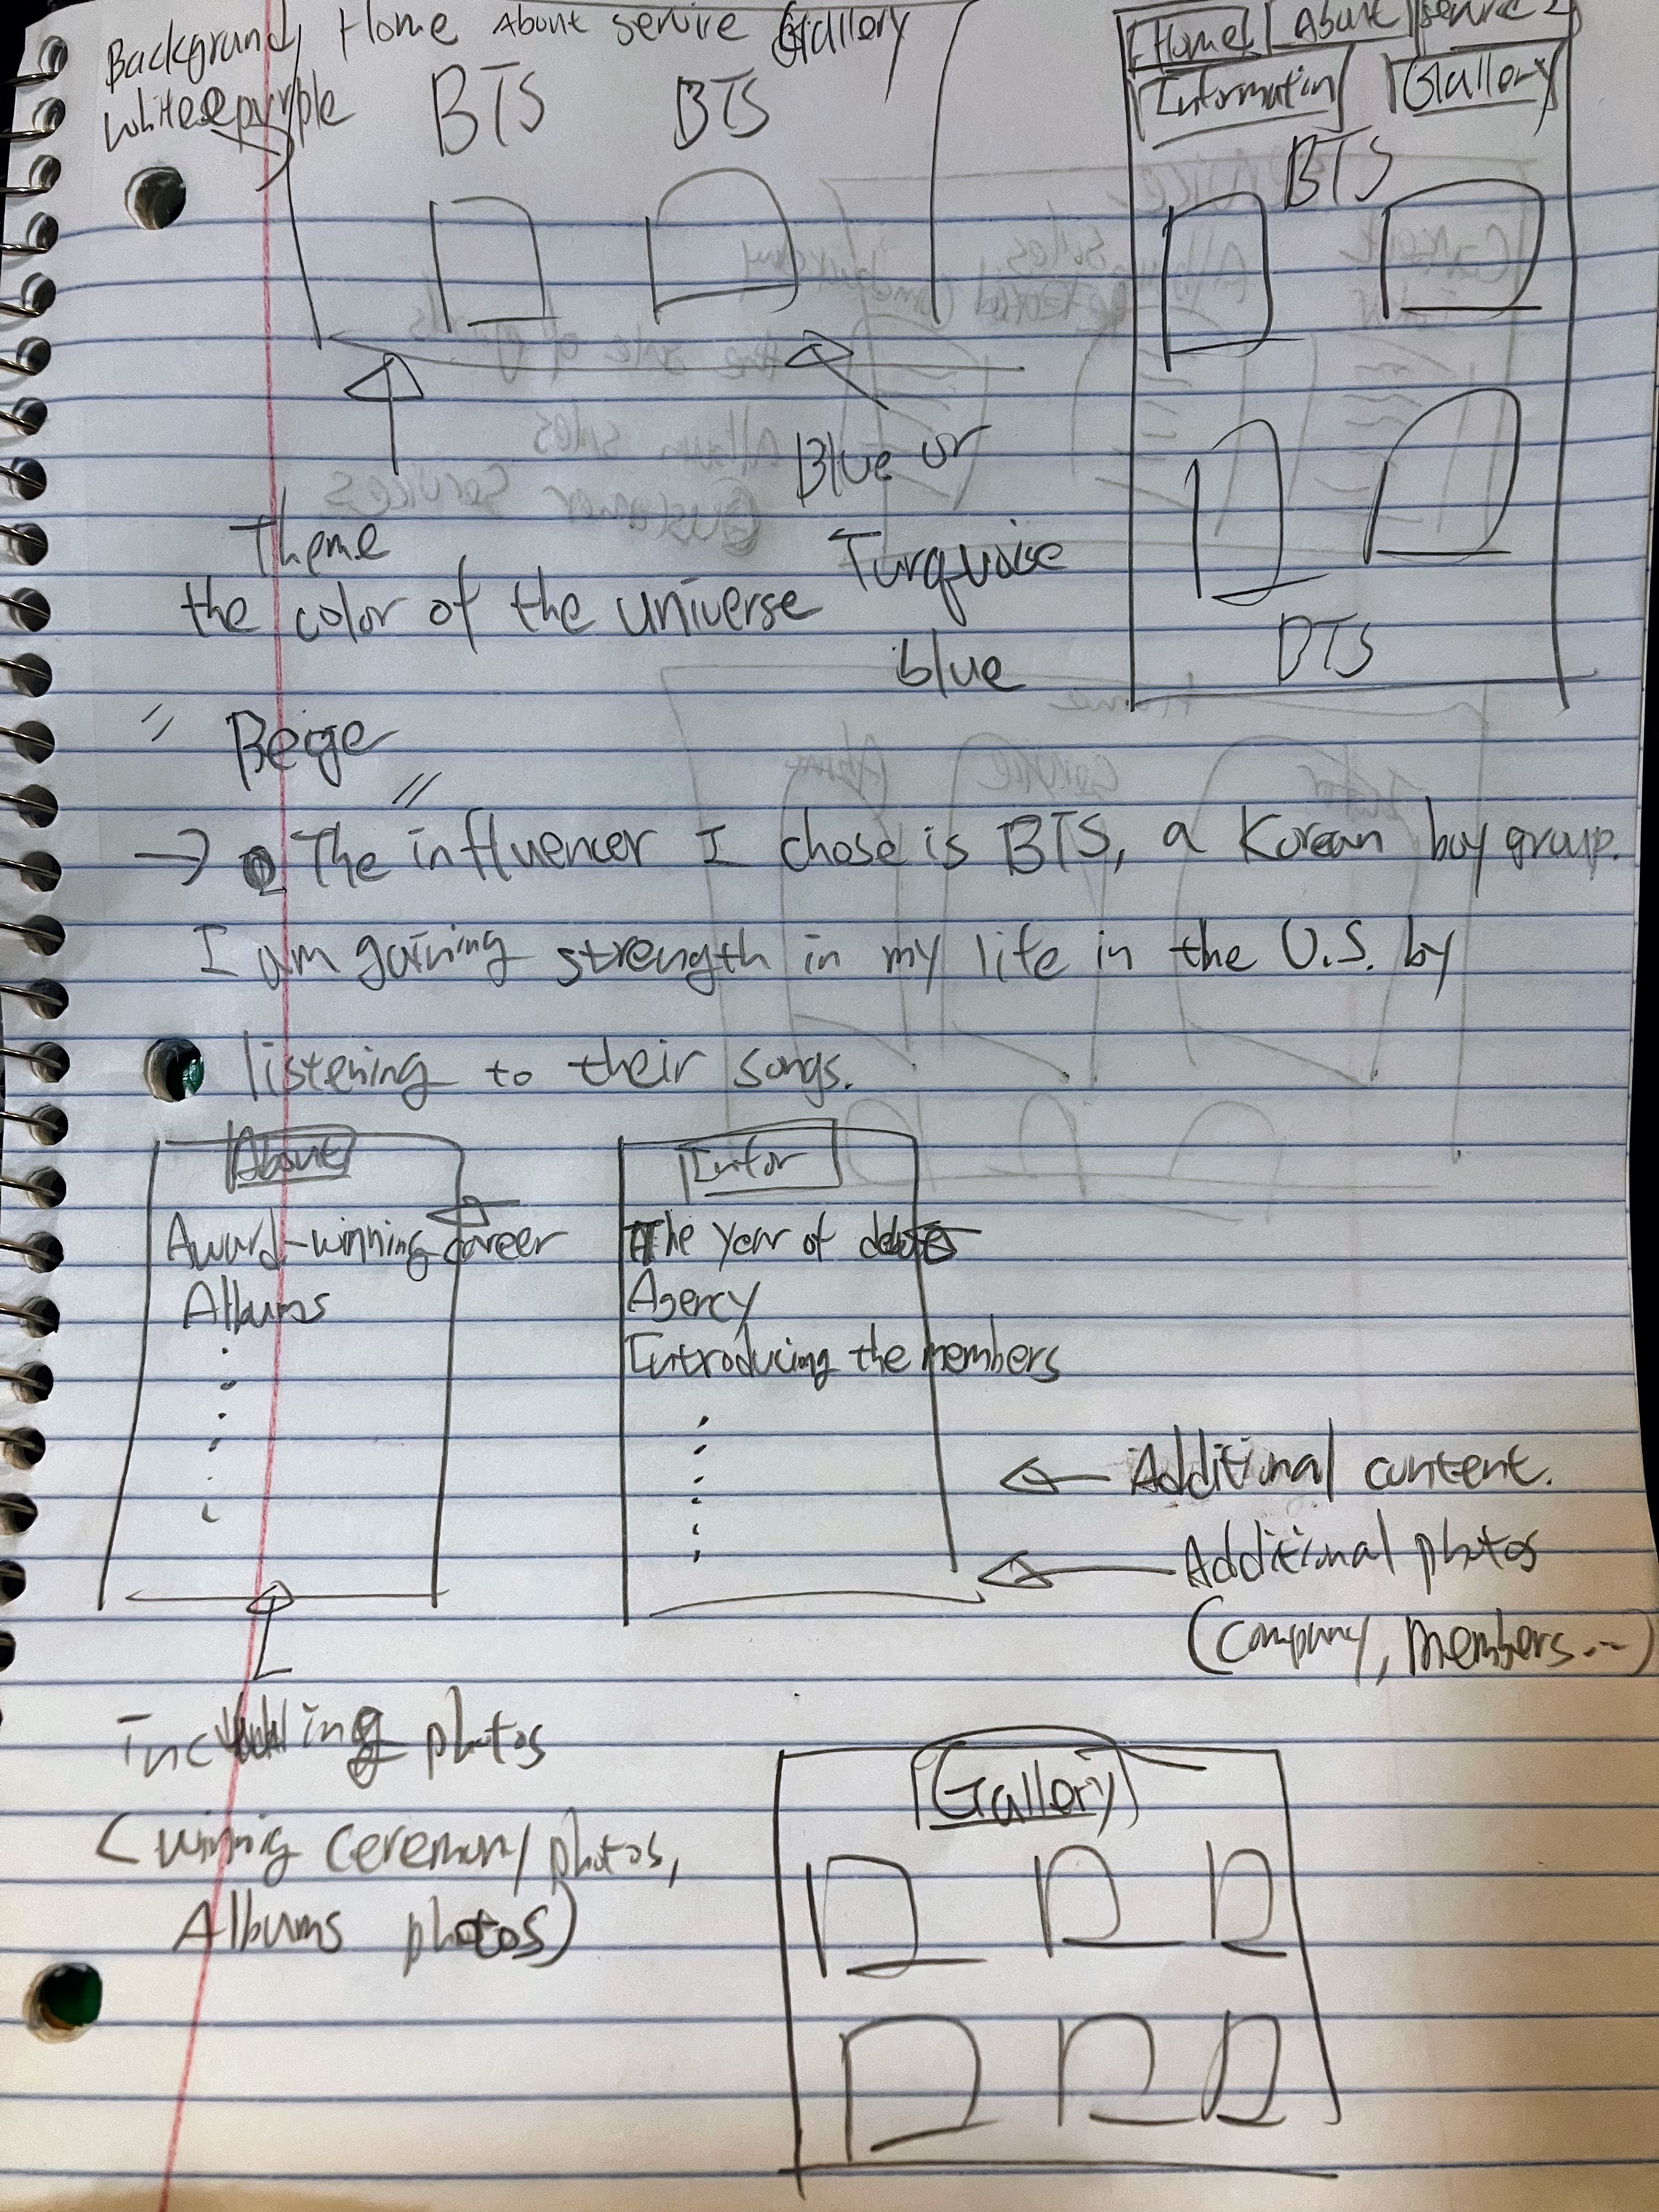 Background Home About service Gallery
white purple
BTS BTS
Home About service
Information Gallery
BTS
Blue or
Turquoise
blue
Theme
the color of the universe
BTS
" Beige "
→ The influencer I chose is BTS, a Korean boy group.
I am gaining strength in my life in the U.S. by
listening to their songs.
About
Award-winning career
Albums
Infor
The year of debut
Agency
Introducing the members
Additional content.
Additional photos
(company, members...)
including photos
(winning ceremony photos,
Albums photos)
Gallery